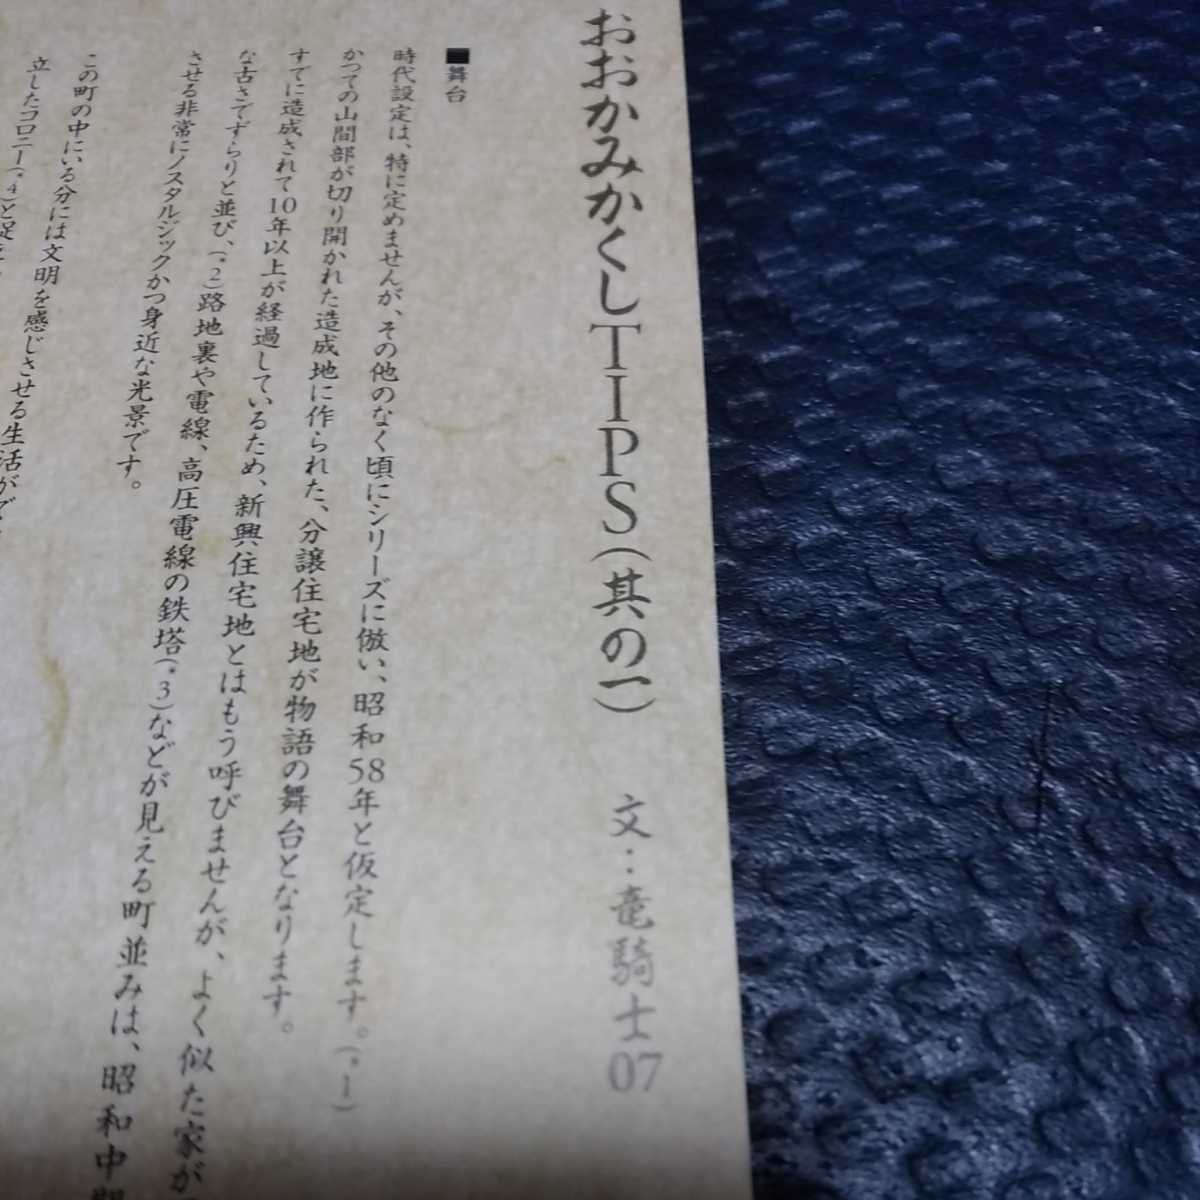 おおかみかくしTIPS(其の一) 文:竜騎士07
■舞台
時代設定は、特に定めませんが、その他のなく頃にシリーズに倣い、昭和58年と仮定します。(*1)
かつての山間部が切り開かれた造成地に作られた、分譲住宅地が物語の舞台となります。
すでに造成されて10年以上が経過しているため、新興住宅地とはもう呼びませんが、よく似た家が
な古さでずらりと並び、(*2)路地裏や電線、高圧電線の鉄塔(*3)などが見える町並みは、昭和中
させる非常にノスタルジックかつ身近な光景です。
この町の中にいる分には文明を感じさせる生活がで
立したコロニー(*4)と